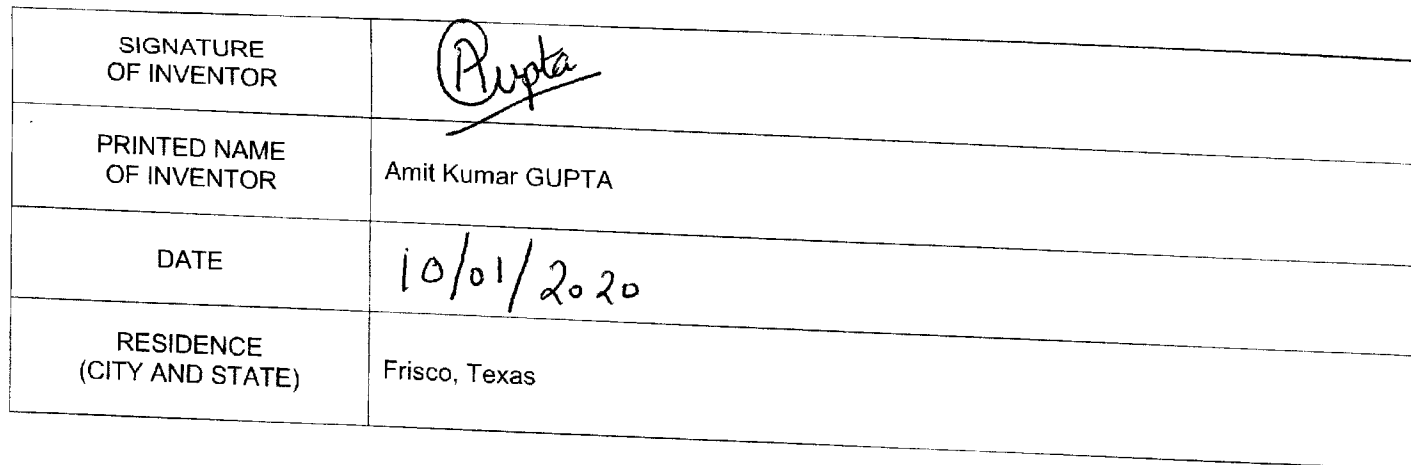 SIGNATURE
OF INVENTOR
AGupta
PRINTED NAME
OF INVENTOR
Amit Kumar GUPTA
DATE
10/01/2020
RESIDENCE
(CITY AND STATE)
Frisco, Texas